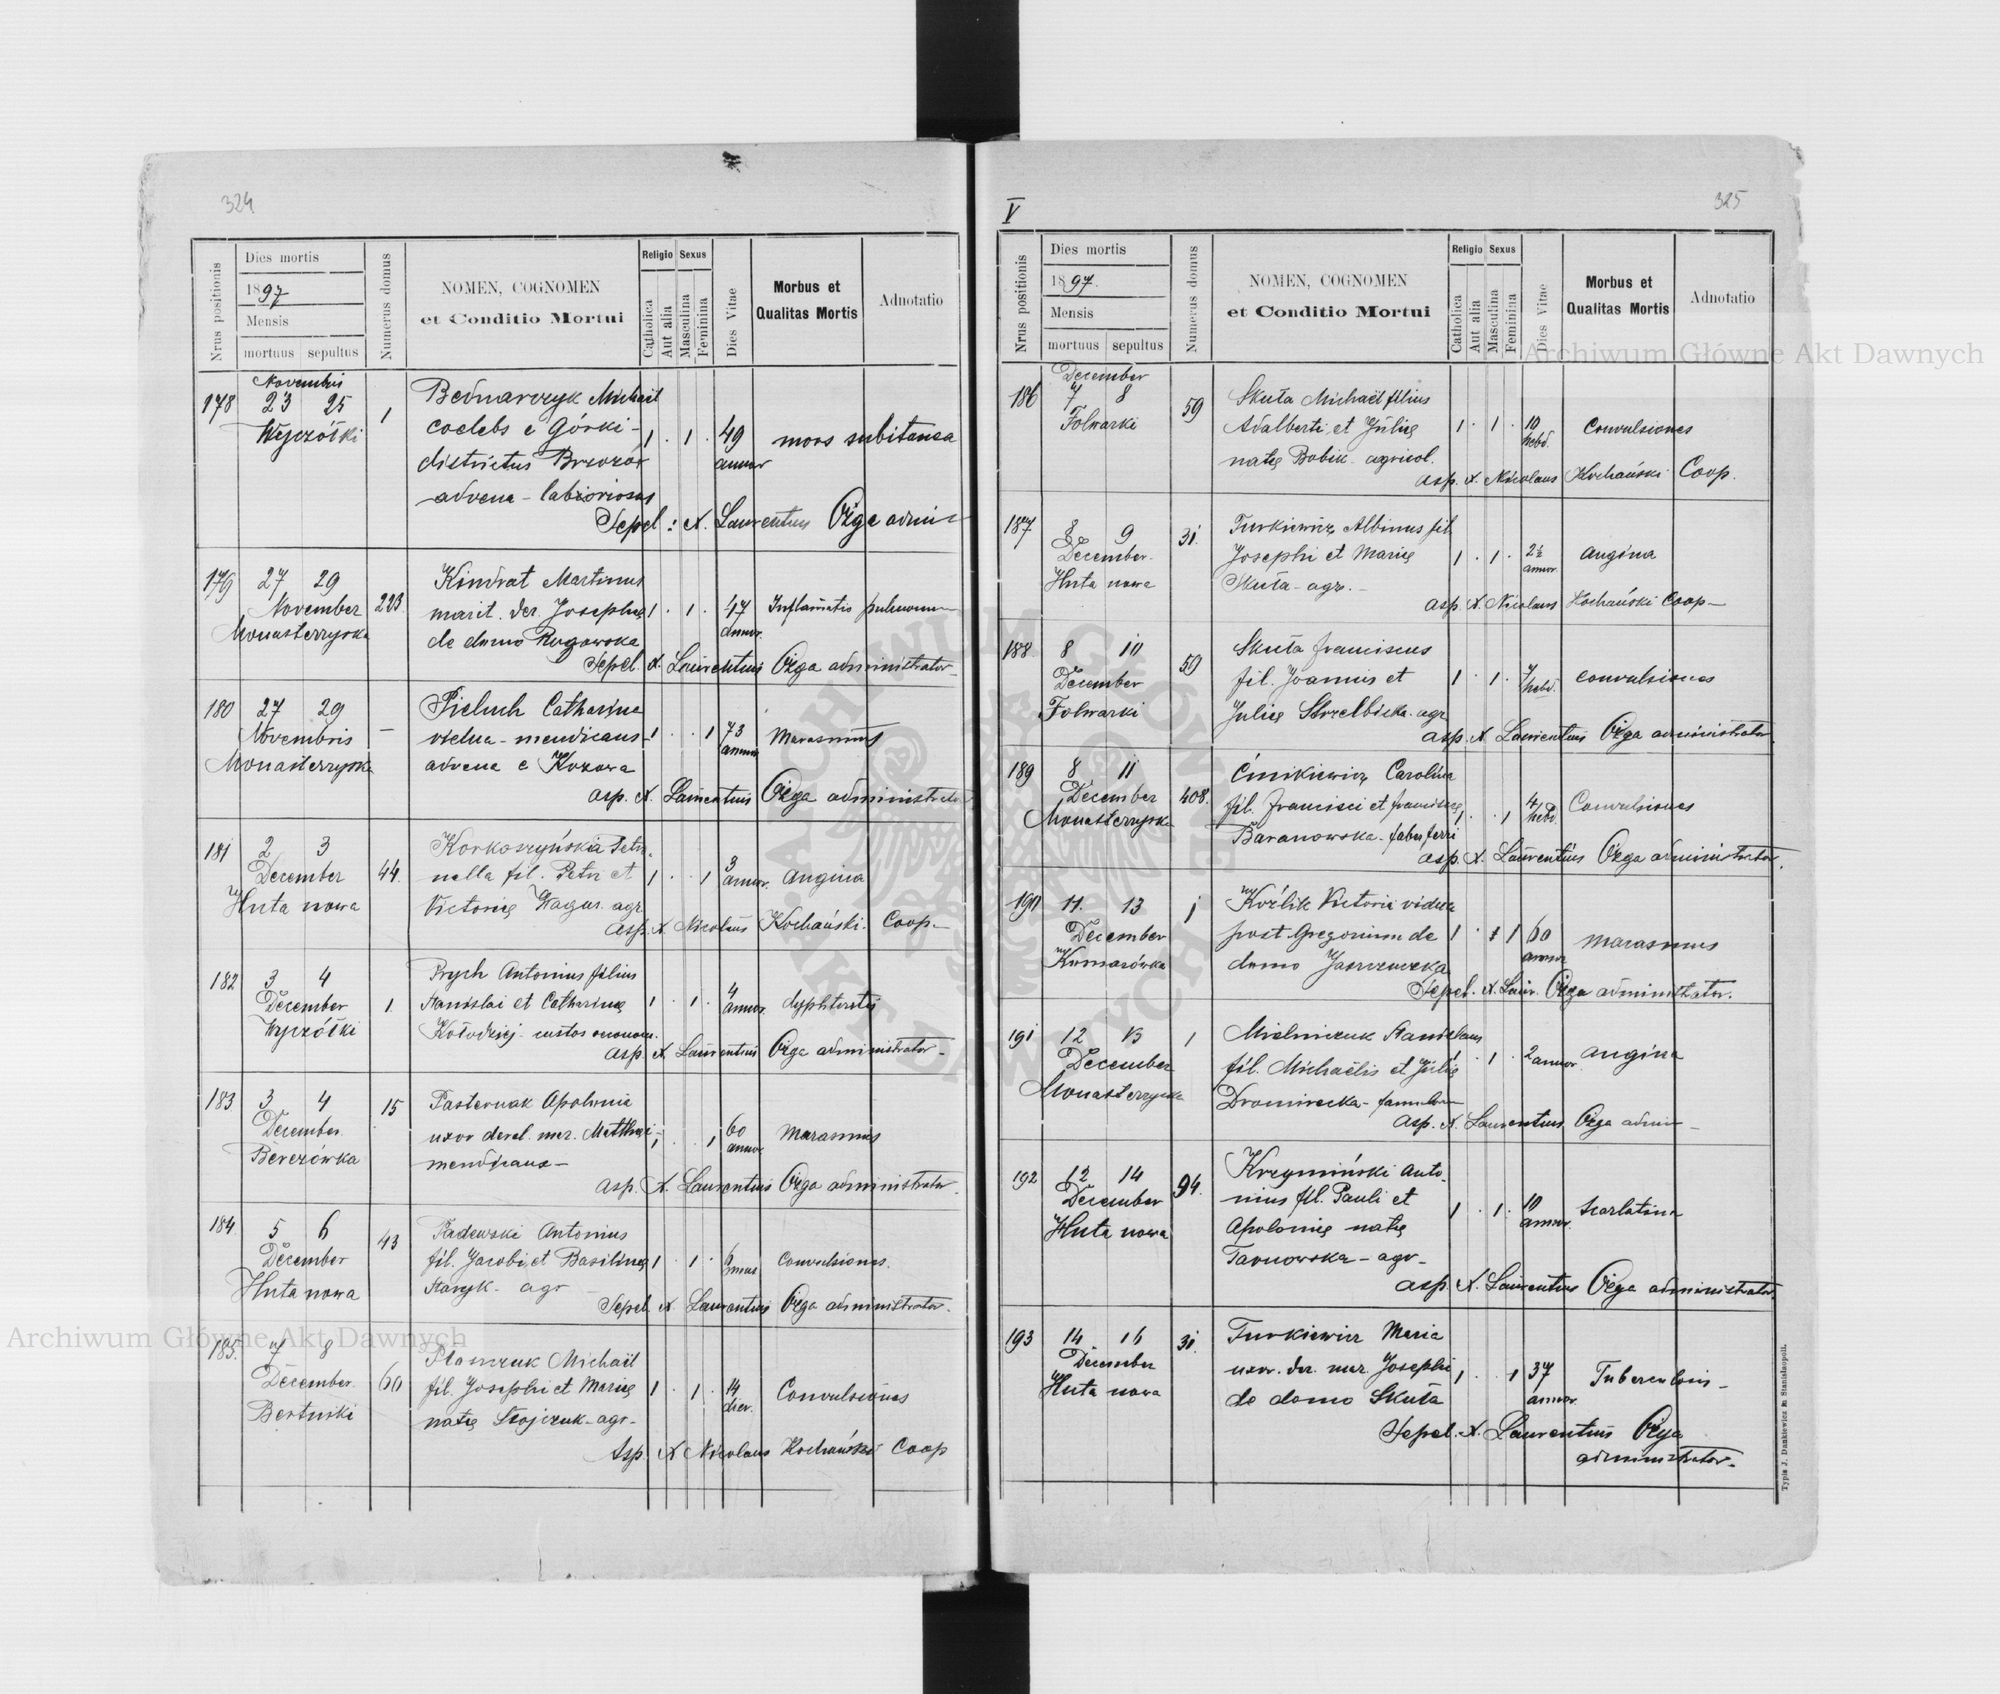 324
Nrus positionis
Dies mortis
1897
Mensis
mortuus sepultus
Numerus domus
NOMEN, COGNOMEN
et Conditio Mortui
Religio Sexus
Catholica
Aut alia
Masculina
Feminina
Dies Vitae
Morbus et
Qualitas Mortis
Adnotatio
Novembris
178 23 25 1 Bednarczyk Michael
Wyczółki coelebs e Górki - 1 . 1 . 49 mors subitanea
districtus Brzozów annor
advena - laboriosus
Sepel : X. Laurentius Ożga admin
179 27 29 Kindrat Martinus
November 223. marit. der. Josephę 1 . 1 . 47 Inflamatio pulmonum
Monasterzyska de domo Rogowska annor.
Sepel. X. Laurentius Ożga administrator
180 27 29 Pieluch Catharina
Novembris - mendicans 1 . . 1 73 Marasmus
Monasterzyska advena e Kozowa annor
asp. X. Laurentius Ożga administrator
181 2 3 Korkoszyńska Petro-
December 44. nella fil. Petri et 1 . . 1 3 annor. angina
Huta nowa Victorię agr
asp. X. Nicolaus Kochański. Coop.
182 3 4 Prych Antonius filius
December 1. Stanislai et Catharinę 1 . 1 . 4 annor. dyphteritis
Wyczółki Kołodziej - custos
asp. X. Laurentius Ożga administrator
183 3 4 15 Pasternak Apolonia
December uxor derel. mar. Matthaei 1 . . 1 60 annor Marasmus
Berezówka mendicans -
asp. X. Laurentius Ożga administrator.
184 5 6 43 Padewski Antonius
December fil. Jacobi et Basilinę 1 . 1 . 6 Convulsiones.
Huta nowa Haryk - agr
Sepel. X. Laurentius Ożga administrator.
185. 7 8 Michaël
December. 60 fil. Josephi et Marię 1 . 1 . 14 dier. Convulsiones
Bertniki natę Stojczuk - agr -
Asp. X Nicolaus Kochański Coop
V
325
Nrus positionis
Dies mortis
1897.
Mensis
mortuus sepultus
Numerus domus
NOMEN, COGNOMEN
et Conditio Mortui
Religio Sexus
Catholica
Aut alia
Masculina
Feminina
Dies Vitae
Morbus et
Qualitas Mortis
Adnotatio
December
186 7 8 59 Skuta Michaël filius
Folwarki Adalberti et Julię 1 . 1 . 10 hebd. Convulsiones
natę Bobik - agricol.
asp. X. Nicolaus Kochański Coop.
187 8 9 31. Turkiewicz Albinus fil
December. Josephi et Marię 1 . 1 . 2½ annor. angina
Huta nowa Skuta - agr. -
asp. X. Nicolaus Kochański Coop -
188 8 10 59 Skuta Franciscus
December fil. Joannis et 1 . 1 . 7 hebd. convulsiones
Folwarki Julię Strzelbicka - agr
asp. X. Laurentius Ożga administrator.
189 8 11 Ćmikiewicz Carolina
December 408. fil. Francisci et Franciscę 1 . . 1 4 hebd. Convulsiones
Monasterzyska Baranowska - faber ferri
asp. X. Laurentius Ożga administrator.
190 11. 13 1 Koźlik Victoria vidua
December post Gregorium de 1 . 1 60 annor marasmus
Komarówka domo
Sepel. X. Laur. Ożga administrator.
191 12 13 1 Mielniczuk Stanislaus
December fil. Michaëlis et Julię 1 . 1 . 2 annor. angina
Monasterzyska Dromirecka - famulorum
asp. X. Laurentius Ożga admin -
192 12 14 94. Krzymiński Anto-
December nius fil. Pauli et 1 . 1 . 10 annor. scarlatina
Huta nowa Apolonię natę
Tarnowska - agr -
asp. X. Laurentius Ożga administrator.
193 14 16 31. Turkiewicz Maria
December uxor. der. mar. Josephi 1 . . 1 37 annor. Tuberculosis -
Huta nowa de domo Skuta
Sepel. X. Laurentius Ożga
administrator.
Typis J. Dankiewicz in Stanislaopoli.
Archiwum Główne Akt Dawnych
Archiwum Główne Akt Dawnych
ARCHIWUM GŁÓWNE AKT DAWNYCH